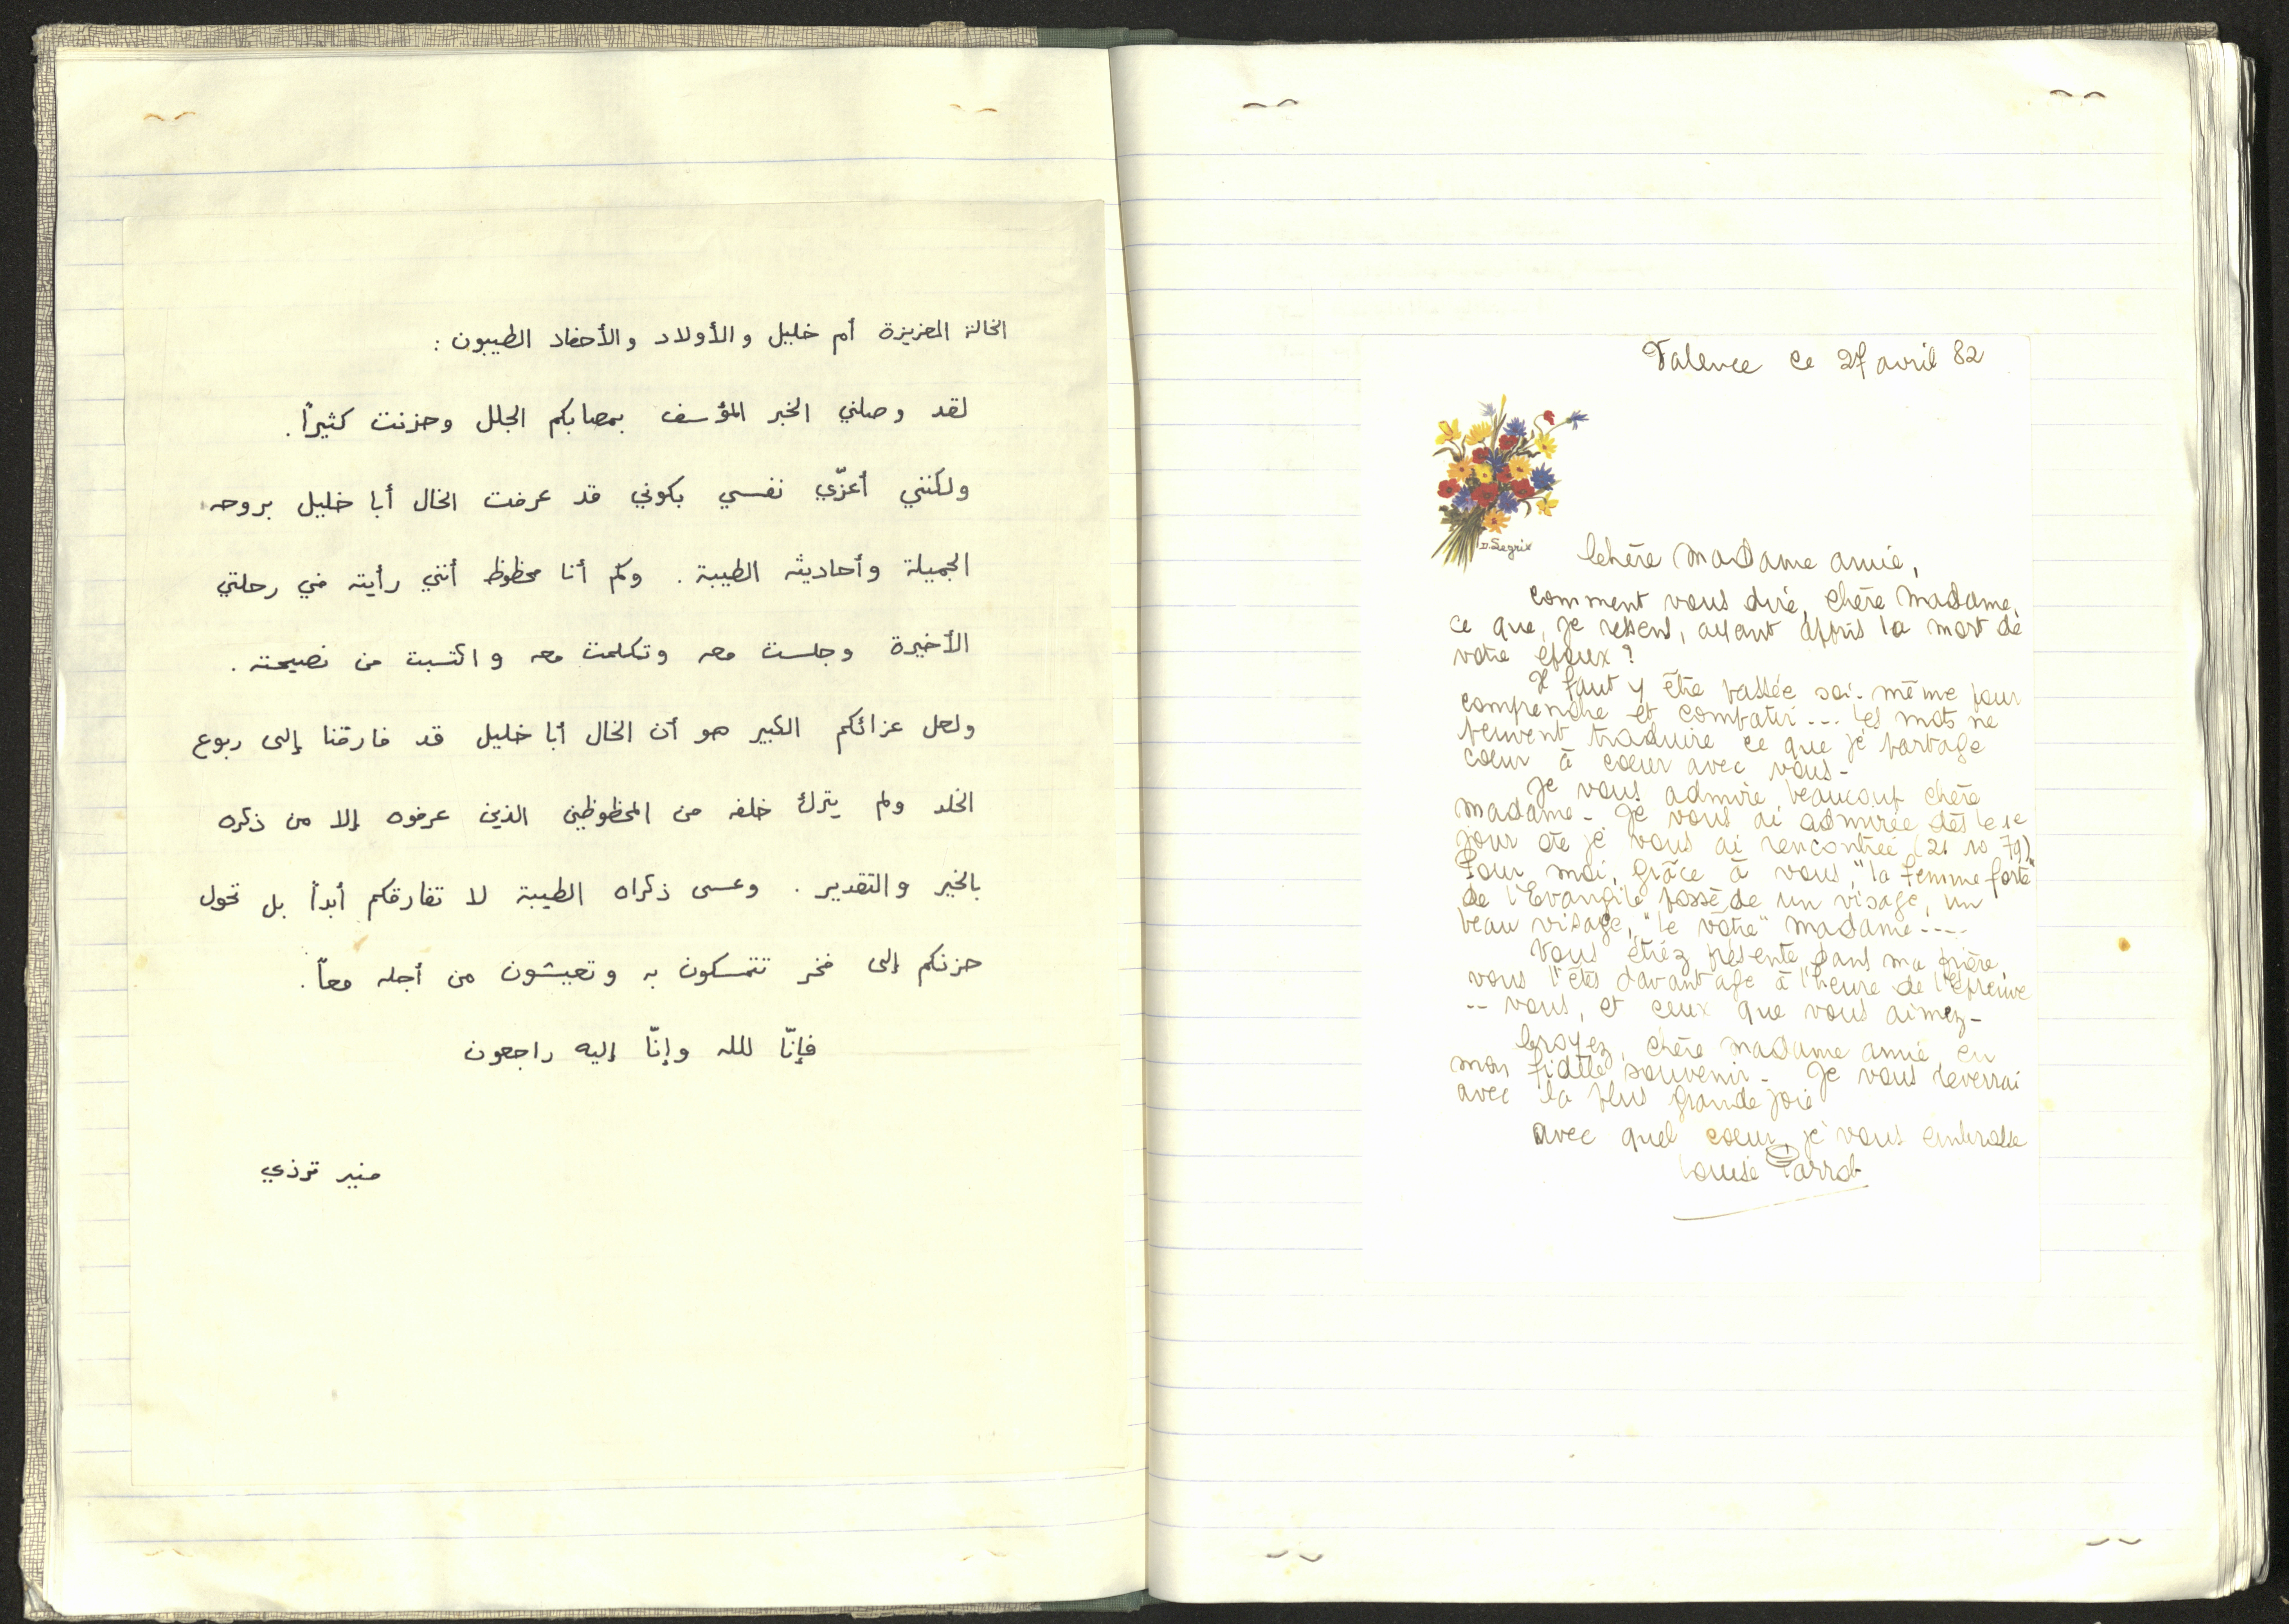 الخالة العزيزة أم خليل والأولاد والأحفاد الطيبون :
لقد وصلني الخبر المؤسف بمصابكم الجلل وحزنت كثيراً .
ولكنني أعزّي نفسي بكوني قد عرفت الخال أبا خليل بروحه
الجميلة وأحاديثه الطيبة . وكم أنا محظوظ أنني رأيته في رحلتي
الأخيرة وجلست معه وتكلمت معه واكتسبت من نصيحته .
ولعل عزائكم الكبير هو أن الخال أبا خليل قد فارقنا إلى ربوع
الخلد ولم يترك خلفه من المحظوظين الذين عرفوه إلا من ذكره
بالخير والتقدير . وعسى ذكراه الطيبة لا تفارقكم أبداً بل تحول
حزنكم إلى فخر تتمسكون به وتعيشون من أجله معاً .
فإنّا لله وإنّا إليه راجعون
منير ترزي
Valence ce 27 avril 82
D. Segrix
Chère Madame amie,
comment vous dire, chère Madame,
ce que je ressens, ayant appris la mort de
votre époux ?
Il faut y être passée soi-même pour
comprendre et compatir --- les mots ne
peuvent traduire ce que je partage
coeur à coeur avec vous -
Je vous admire beaucoup chère
Madame - Je vous ai admirée dès le 1e
jour où je vous ai rencontrée (21 10 79)
Pour moi, grâce à vous, "la femme forte"
de l'Evangile possède un visage, un
beau visage, "le vôtre" Madame ----
Vous étiez présente dans ma prière
vous l'êtes davantage à l'heure de l'épreuve
-- vous, et ceux que vous aimez -
Croyez, chère Madame amie, en
mon fidèle souvenir - Je vous reverrai
avec la plus grande joie
avec quel coeur je vous embrasse
Louise Parrot